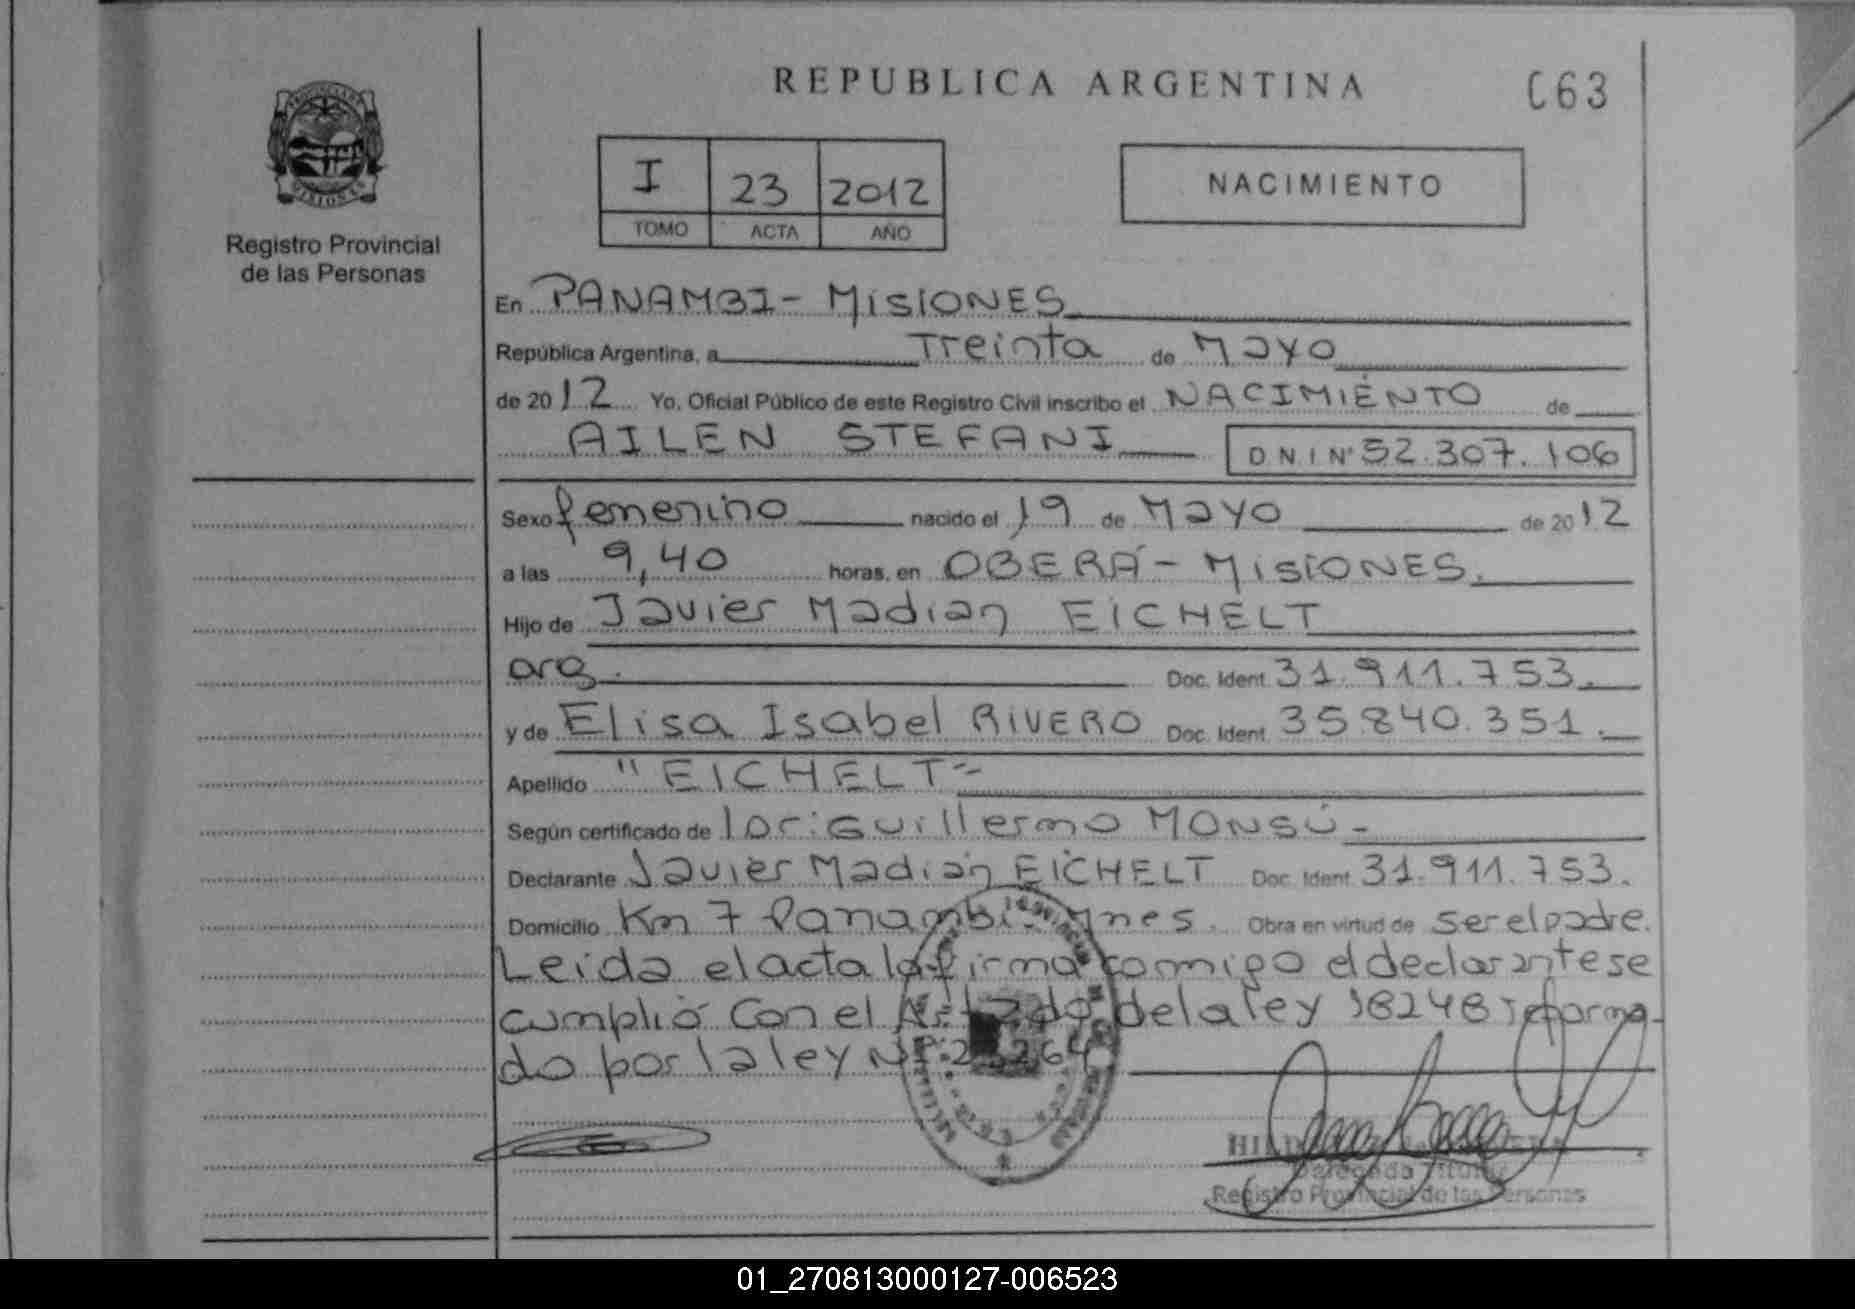 REPUBLICA ARGENTINA
C63
PROVINCIA DE
MISIONES
Registro Provincial
de las Personas
I 23 2012
TOMO ACTA AÑO
NACIMIENTO
En PANAMBI - MISIONES
República Argentina, a Treinta de MAYO
de 2012 Yo, Oficial Público de este Registro Civil inscribo el NACIMIENTO de
AILEN STEFANI DNI Nº 52.307.106
Sexo femenino nacido el 19 de MAYO de 2012
a las 9,40 horas, en OBERÁ - MISIONES.
Hijo de Javier Madian EICHELT
arg. Doc. Ident. 31.911.753.
y de Elisa Isabel RIVERO Doc. Ident. 35.840.351.
Apellido "EICHELT"
Según certificado de Guillermo MONSÚ -
Declarante Javier Madian EICHELT Doc. Ident. 31.911.753.
Domicilio Km 7 Panambi Mnes. Obra en virtud de ser el padre.
Leida el acta la firma conmigo el declarante se
cumplió con el de la ley 18248 reforma-
do por la ley Nº
Delegada Titular
Registro Provincial de las Personas
01_270813000127-006523